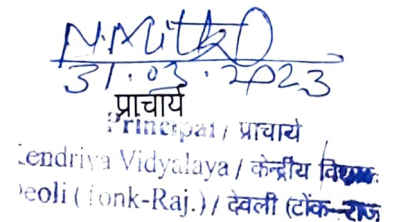 N. Mittal
31.03.2023
प्राचार्य
Principal / प्राचार्य
Kendriya Vidyalaya / केन्द्रीय विद्यालय
Deoli (Tonk-Raj.) / देवली (टोंक-राज